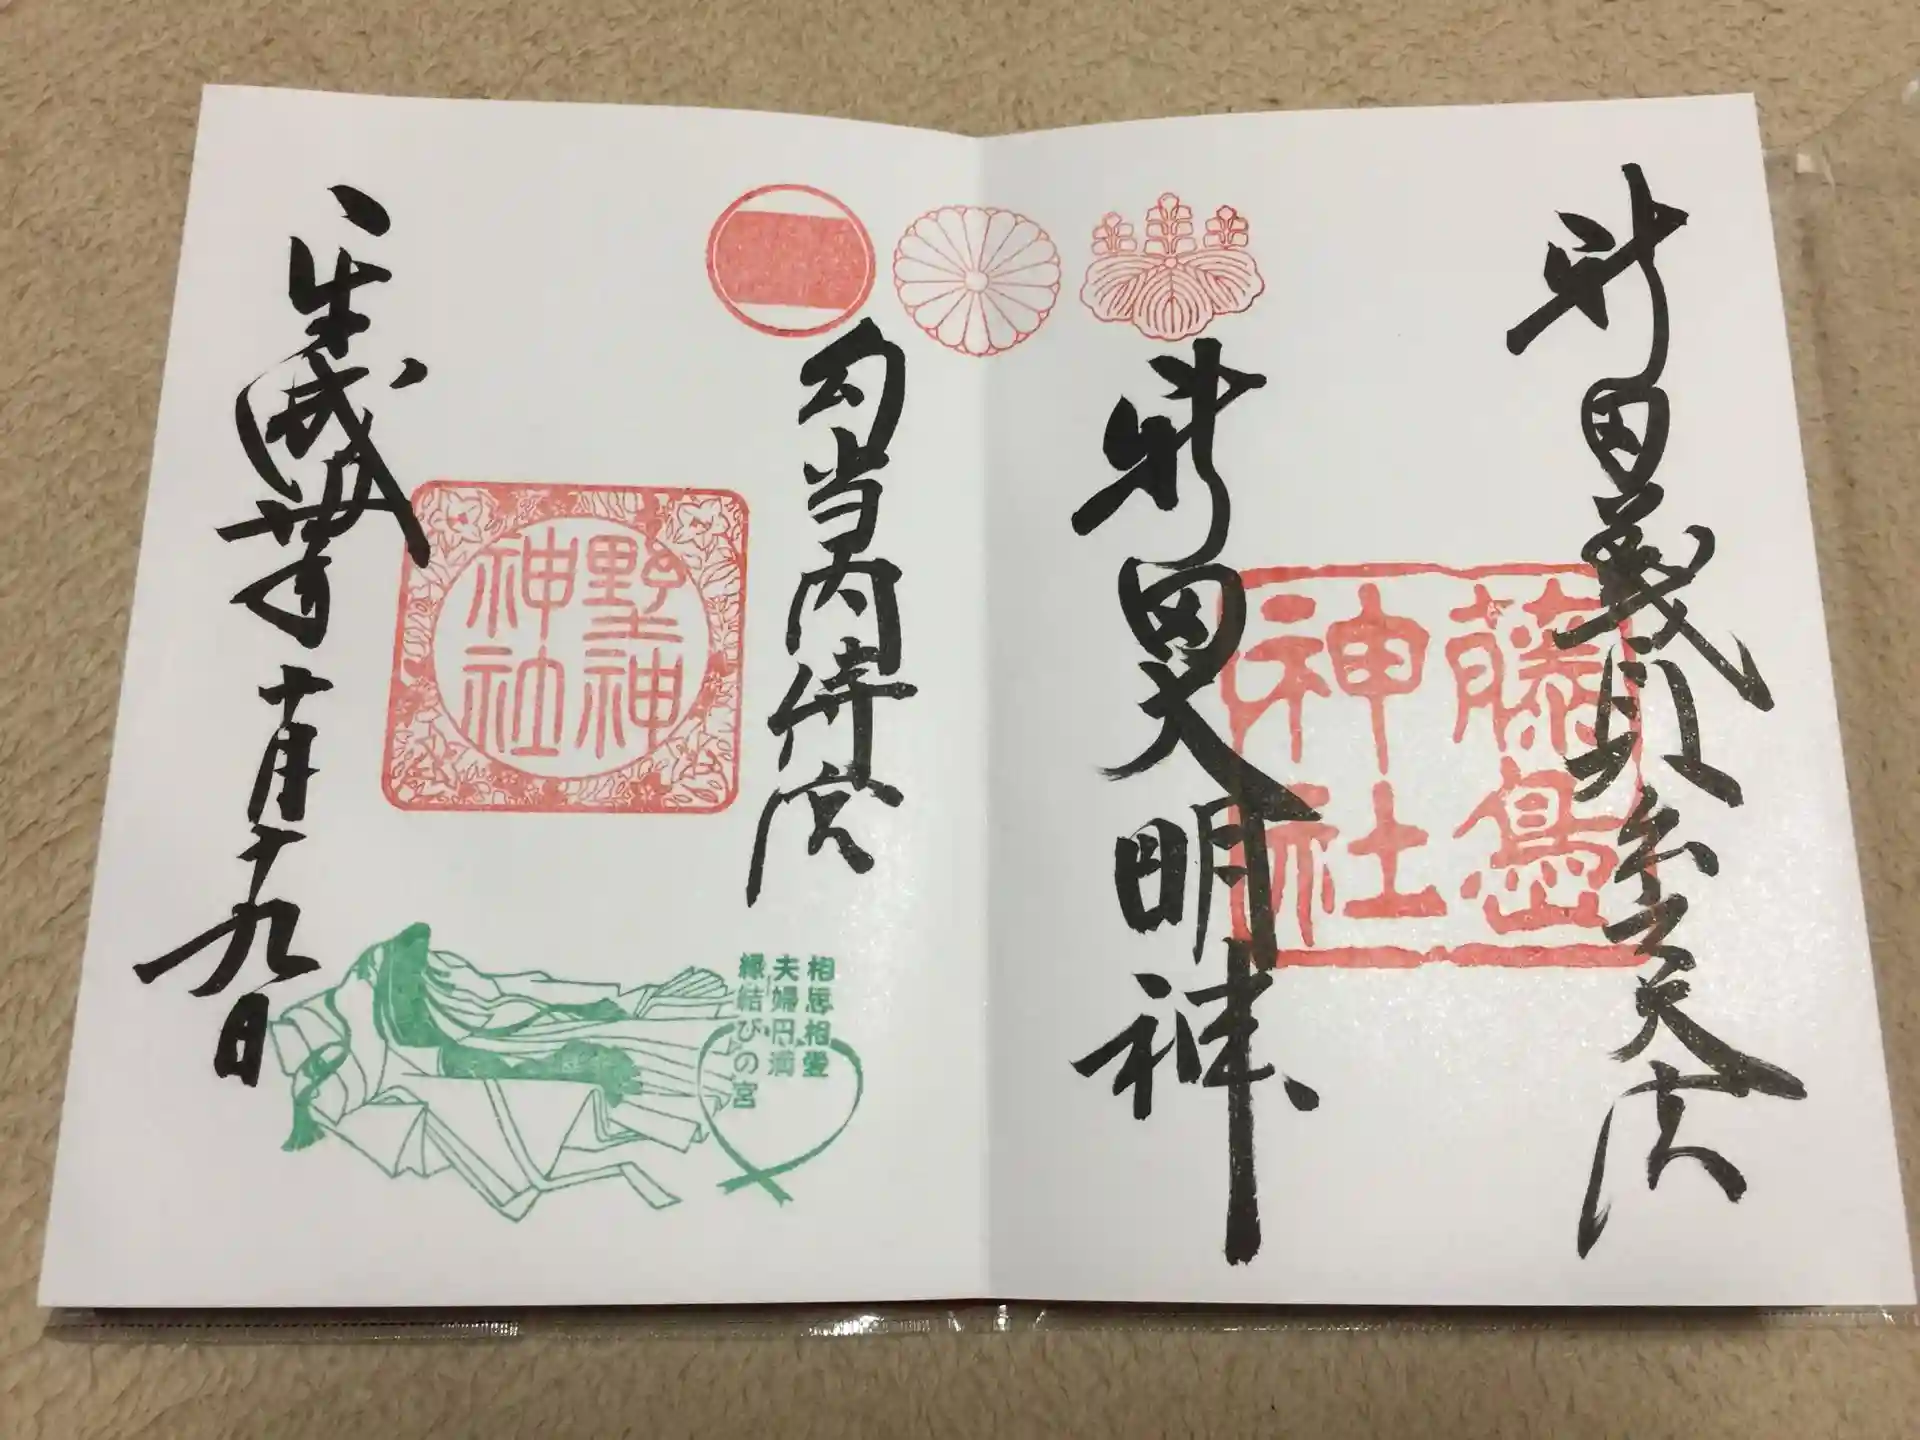 新田義貞
藤島神社
新田大明神
勾当内侍宮
野神神社
相思相愛
夫婦円満
縁結びの宮
平成卅年十月十九日